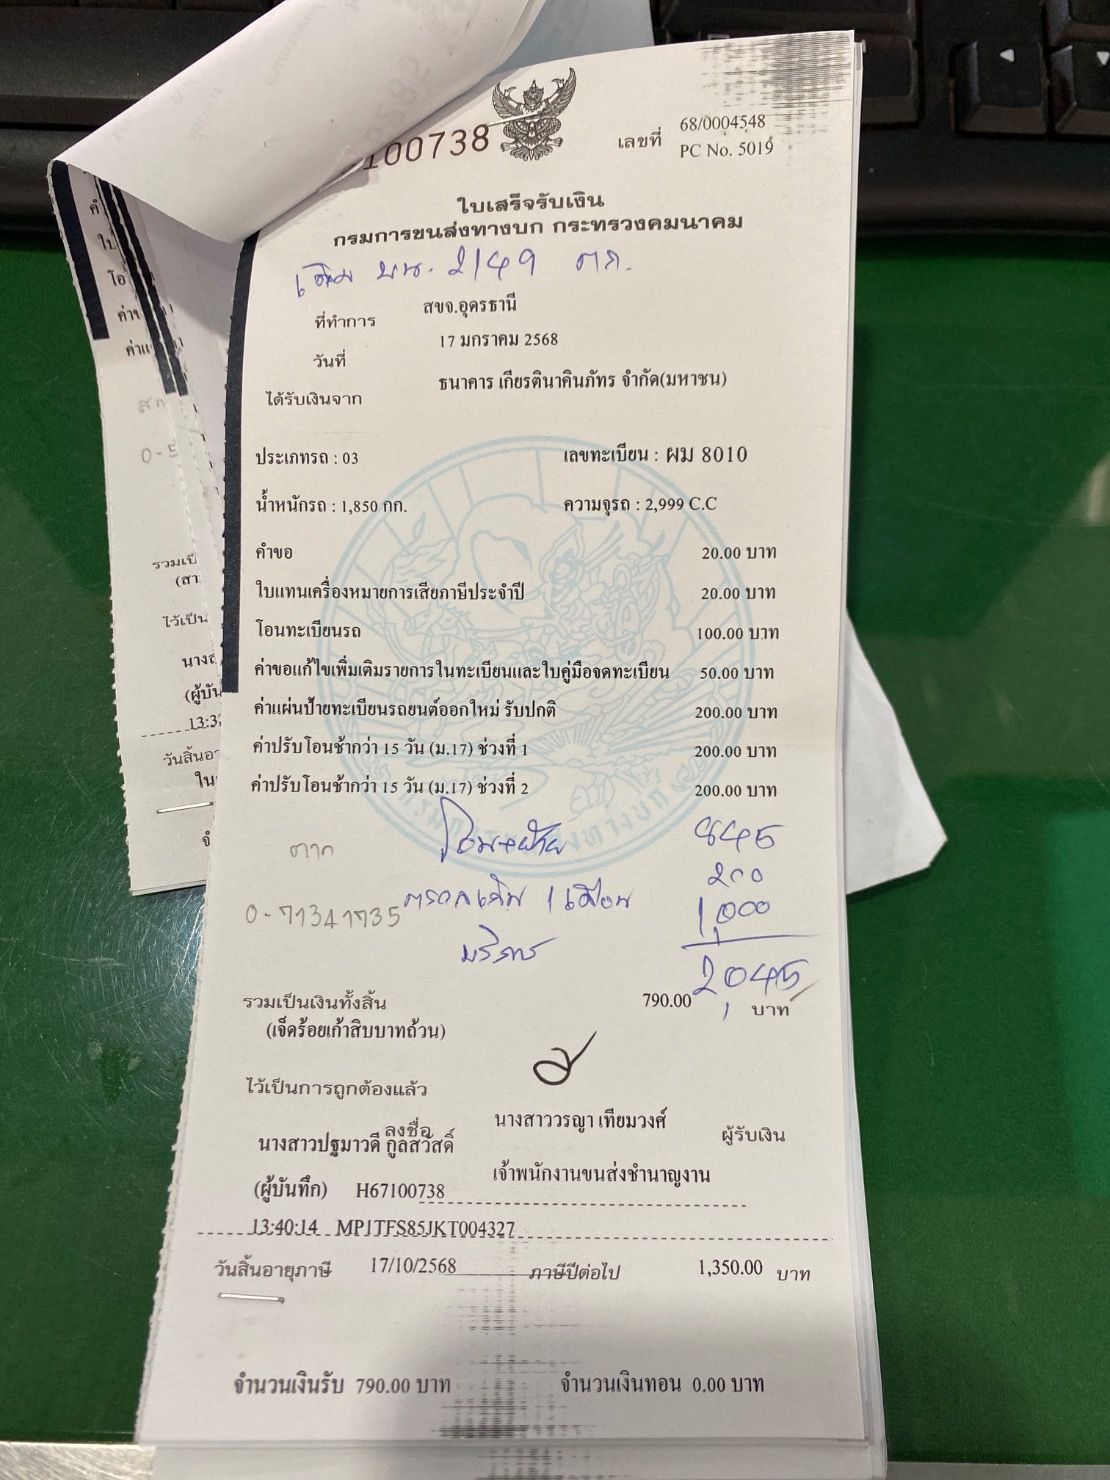 100738
เลขที่ 68/0004548
PC No. 5019
ใบเสร็จรับเงิน
กรมการขนส่งทางบก กระทรวงคมนาคม
เดิม บน. 2149 ตก.
ที่ทำการ สขจ.อุดรธานี
วันที่ 17 มกราคม 2568
ได้รับเงินจาก ธนาคาร เกียรตินาคินภัทร จำกัด(มหาชน)
ประเภทรถ : 03 เลขทะเบียน : ผม 8010
น้ำหนักรถ : 1,850 กก. ความจุรถ : 2,999 C.C
คำขอ 20.00 บาท
ใบแทนเครื่องหมายการเสียภาษีประจำปี 20.00 บาท
โอนทะเบียนรถ 100.00 บาท
ค่าขอแก้ไขเพิ่มเติมรายการในทะเบียนและใบคู่มือจดทะเบียน 50.00 บาท
ค่าแผ่นป้ายทะเบียนรถยนต์ออกใหม่ รับปกติ 200.00 บาท
ค่าปรับโอนช้ากว่า 15 วัน (ม.17) ช่วงที่ 1 200.00 บาท
ค่าปรับโอนช้ากว่า 15 วัน (ม.17) ช่วงที่ 2 200.00 บาท
ตาก โอน+ย้าย 845
200
0-71341735 1 เดือน 1,000
บริการ
2,045
รวมเป็นเงินทั้งสิ้น 790.00 บาท
(เจ็ดร้อยเก้าสิบบาทถ้วน)
ไว้เป็นการถูกต้องแล้ว
ลงชื่อ นางสาววรญา เทียมวงศ์ ผู้รับเงิน
นางสาวปฐมาวดี กูลสวัสดิ์
เจ้าพนักงานขนส่งชำนาญงาน
(ผู้บันทึก) H67100738
13:40:14 MP1TFS85JKT004327
วันสิ้นอายุภาษี 17/10/2568 ภาษีปีต่อไป 1,350.00 บาท
จำนวนเงินรับ 790.00 บาท จำนวนเงินทอน 0.00 บาท